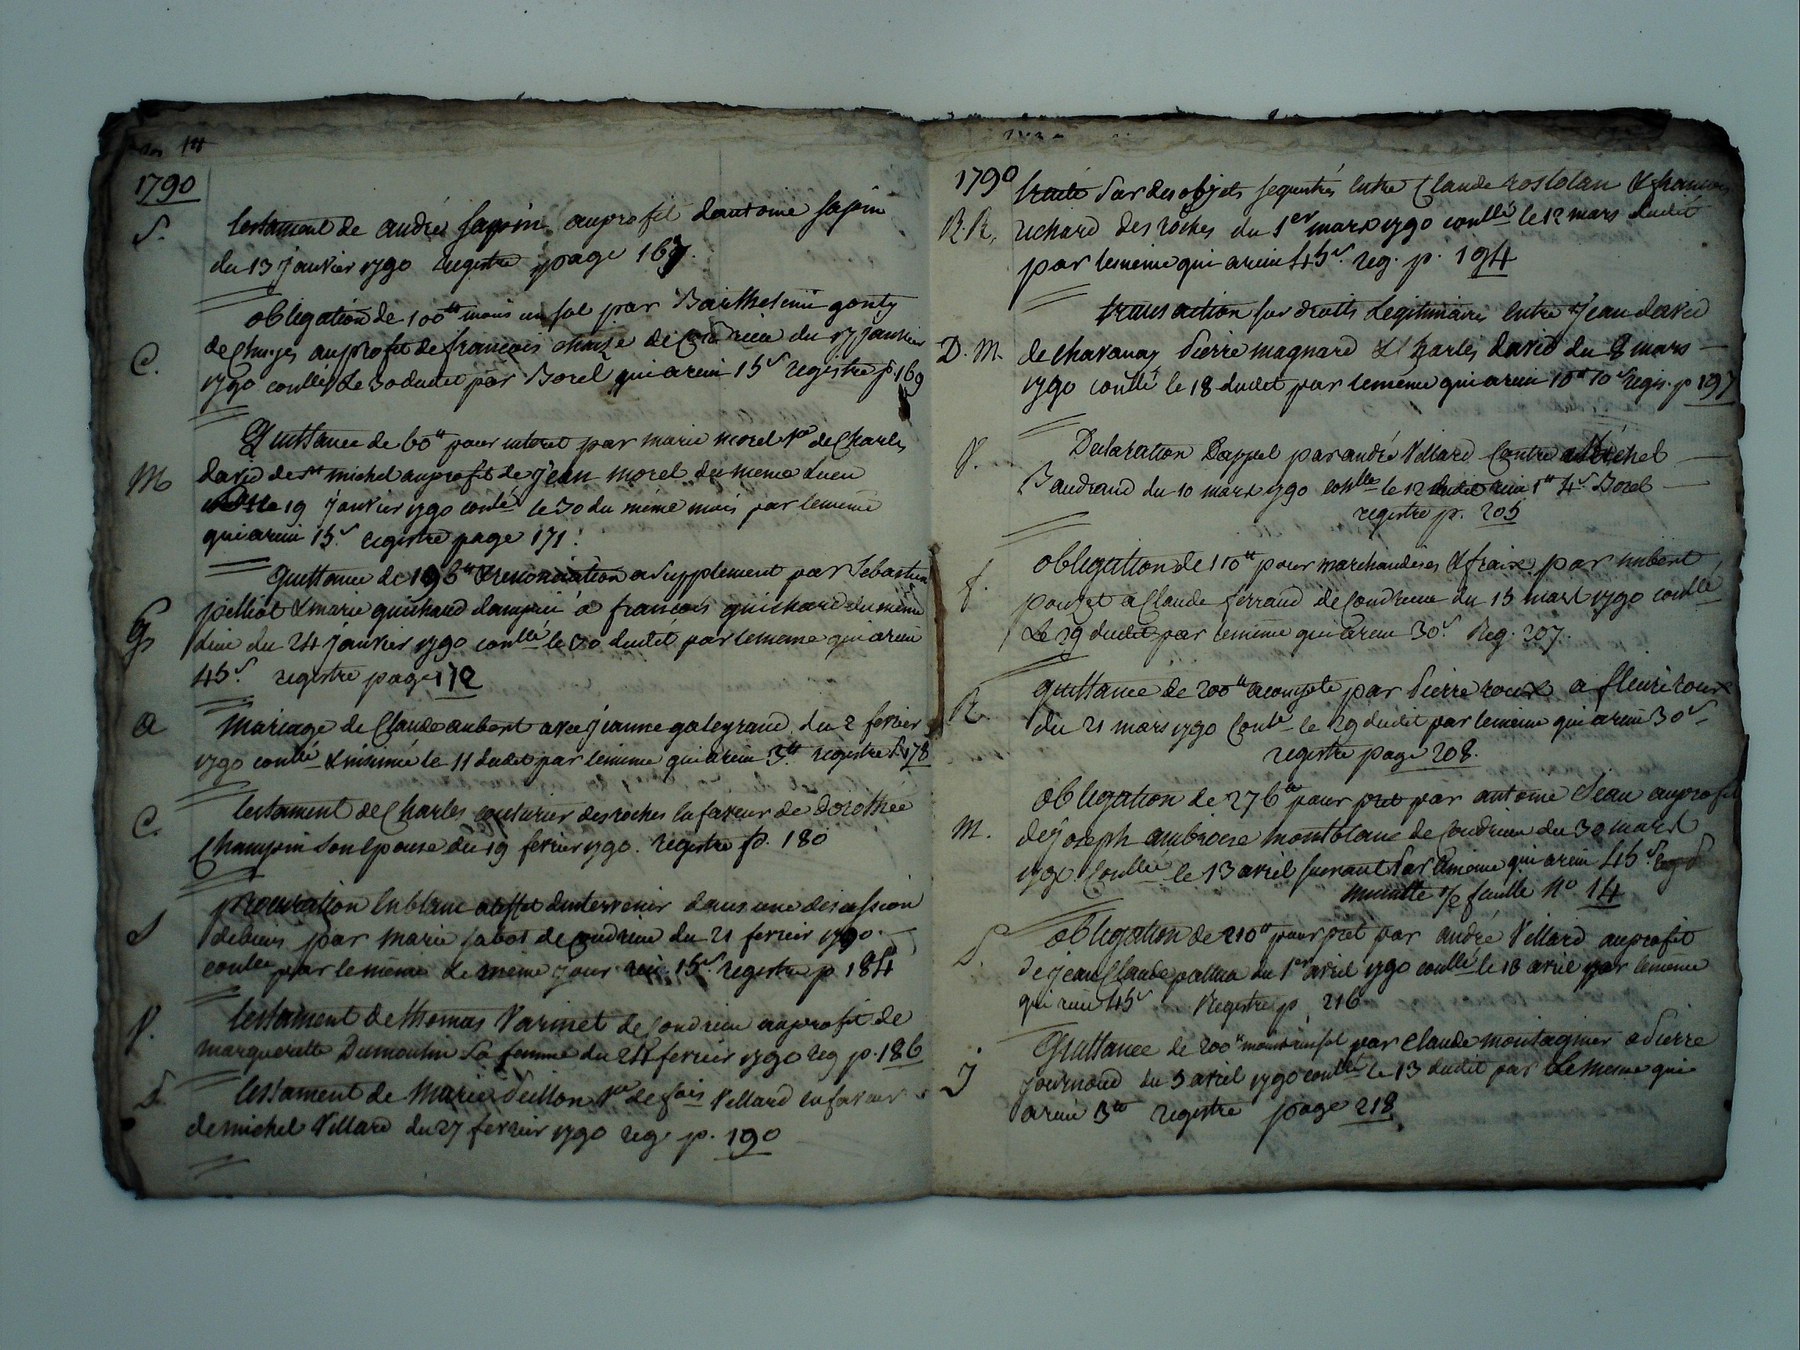 1790
S. testament de andré sapin auprofit dantoine sapin
du 13 janvier 1790 registre page 167.
obligation de 100 ᵗᵗ moins un sol par Barthelemi gonty
C. de Chuyes auprofit de francois chaize de Condrieu du 17 janvier
1790 conllé Le 30 dudit par Borel qui a reçu 15ˢ registre p. 169
Quittance de 60ᵗᵗ pour interet par marie morel Vᵉ de Charles
M david de sᵗ michel auprofit de jean morel du meme Lieu
19 janvier 1790 conlé le 30 du même mois par lememe
qui a reçu 15ˢ. registre page 171.
quittance de 196ᵗᵗ & renonciation a supplement par Sebastien
pelliot & marie guichard dampuis a francois guichard du même
G Lieu du 24 janvier 1790 conllé le 30 dudit par lememe qui a reçu
45ˢ. registre page 172
a mariage de Claude aubert avec jeanne galegrand du 2 fevrier
1790 conllé & insinué le 11 dudit par lememe qui a reçu 3ᵗᵗ registre p. 178
testament de Charles couturier des roches en faveur de dorothée
C. Champin Son Epouse du 19 fevrier 1790. registre p. 180
procuration En blanc a leffet dintervenir dans une discussion
S de biens par marie sabot de Condrieu du 21 fevrier 1790.
conllé par lememe Le même jour reçu 15ˢ. registre p. 184
V. testament de thomas Varinet de Condrieu auprofit de
marguerette Dumoulin Sa femme du 24 fevrier 1790 reg p. 186
testament de Marie Peillon Vᵉ de fois Villard en faveur
de michel Villard du 27 fevrier 1790 reg. p. 190
1790 traité Sur des objets sequestrés Entre Claude rostolan & francois
R. R. richard des roches du 1ᵉʳ mars 1790 conllé le 12 mars dudit
par lememe qui a reçu 45ˢ. reg. p. 194
transaction sur droits Legitimaires Entre jean david
D. M. de Chavanay Pierre magnard & Charles david du 8 mars
1790 conllé le 18 dudit par lememe qui a reçu 10ᵗᵗ 10ˢ regis. p 197
V. Declaration Dappel par andré Villard Contre Michel
Baudrand du 10 mars 1790 conllé le 12 dudit reçu 1ᵗᵗ 4ˢ. Borel
registre p. 205
obligation de 110ᵗᵗ pour marchandises & fraix par imbert
f. pouzet a Claude ferrand de Condrieu du 15 mars 1790 conllé
Le 29 dudit par lememe qui a reçu 30ˢ. Reg. 207.
quittance de 200ᵗᵗ acompte par Pierre roux a fleuri roux
R. du 21 mars 1790 Conlé le 29 dudit par lememe qui a reçu 30ˢ
registre page 208.
obligation de 276ᵗᵗ pour pret par antoine Peau auprofit
M. de joseph ambroise montblanc de Condrieu du 30 mars
1790 Conllé le 13 avril suivant Par lememe qui a reçu 45ˢ
minutte ½ feuille Nº 14
obligation de 210ᵗᵗ pour pret par andré Villard auprofit
de jean Claude pallua du 1ᵉʳ avril 1790 conllé le 13 avril par lememe
qui reçu 45ˢ Registre p. 216
Quittance de 200ᵗᵗ moins un sol par Claude montagnier a Pierre
J journoud du 5 avril 1790 conllé le 13 dudit par Le meme qui
a reçu 3ᵗᵗ registre page 218